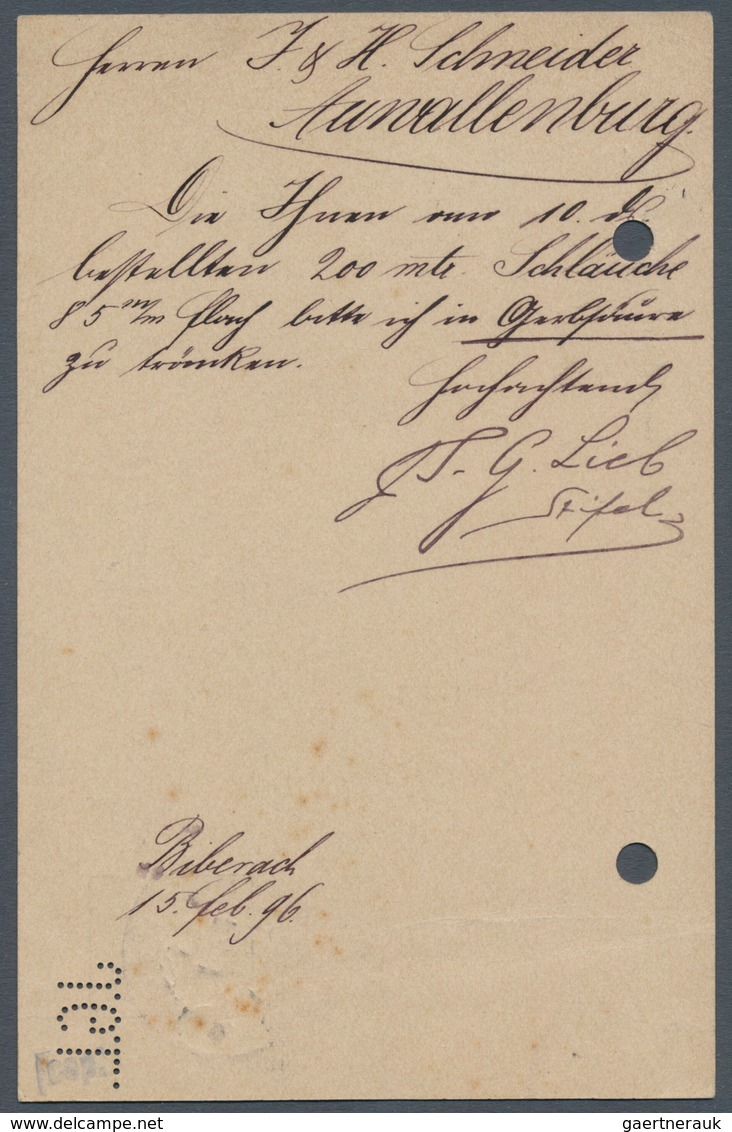 Herren J. & H. Schneider
Aunwallenburg.
Die Ihnen am 10. ds.
bestellten 200 mtr. Schläuche
85 m/m flach bitte ich in Gerbsäure
zu tränken.
Hochachtend
J. G. Lieb
Biberach
15. feb. 96.
www.delcampe.net
gaertnerauk